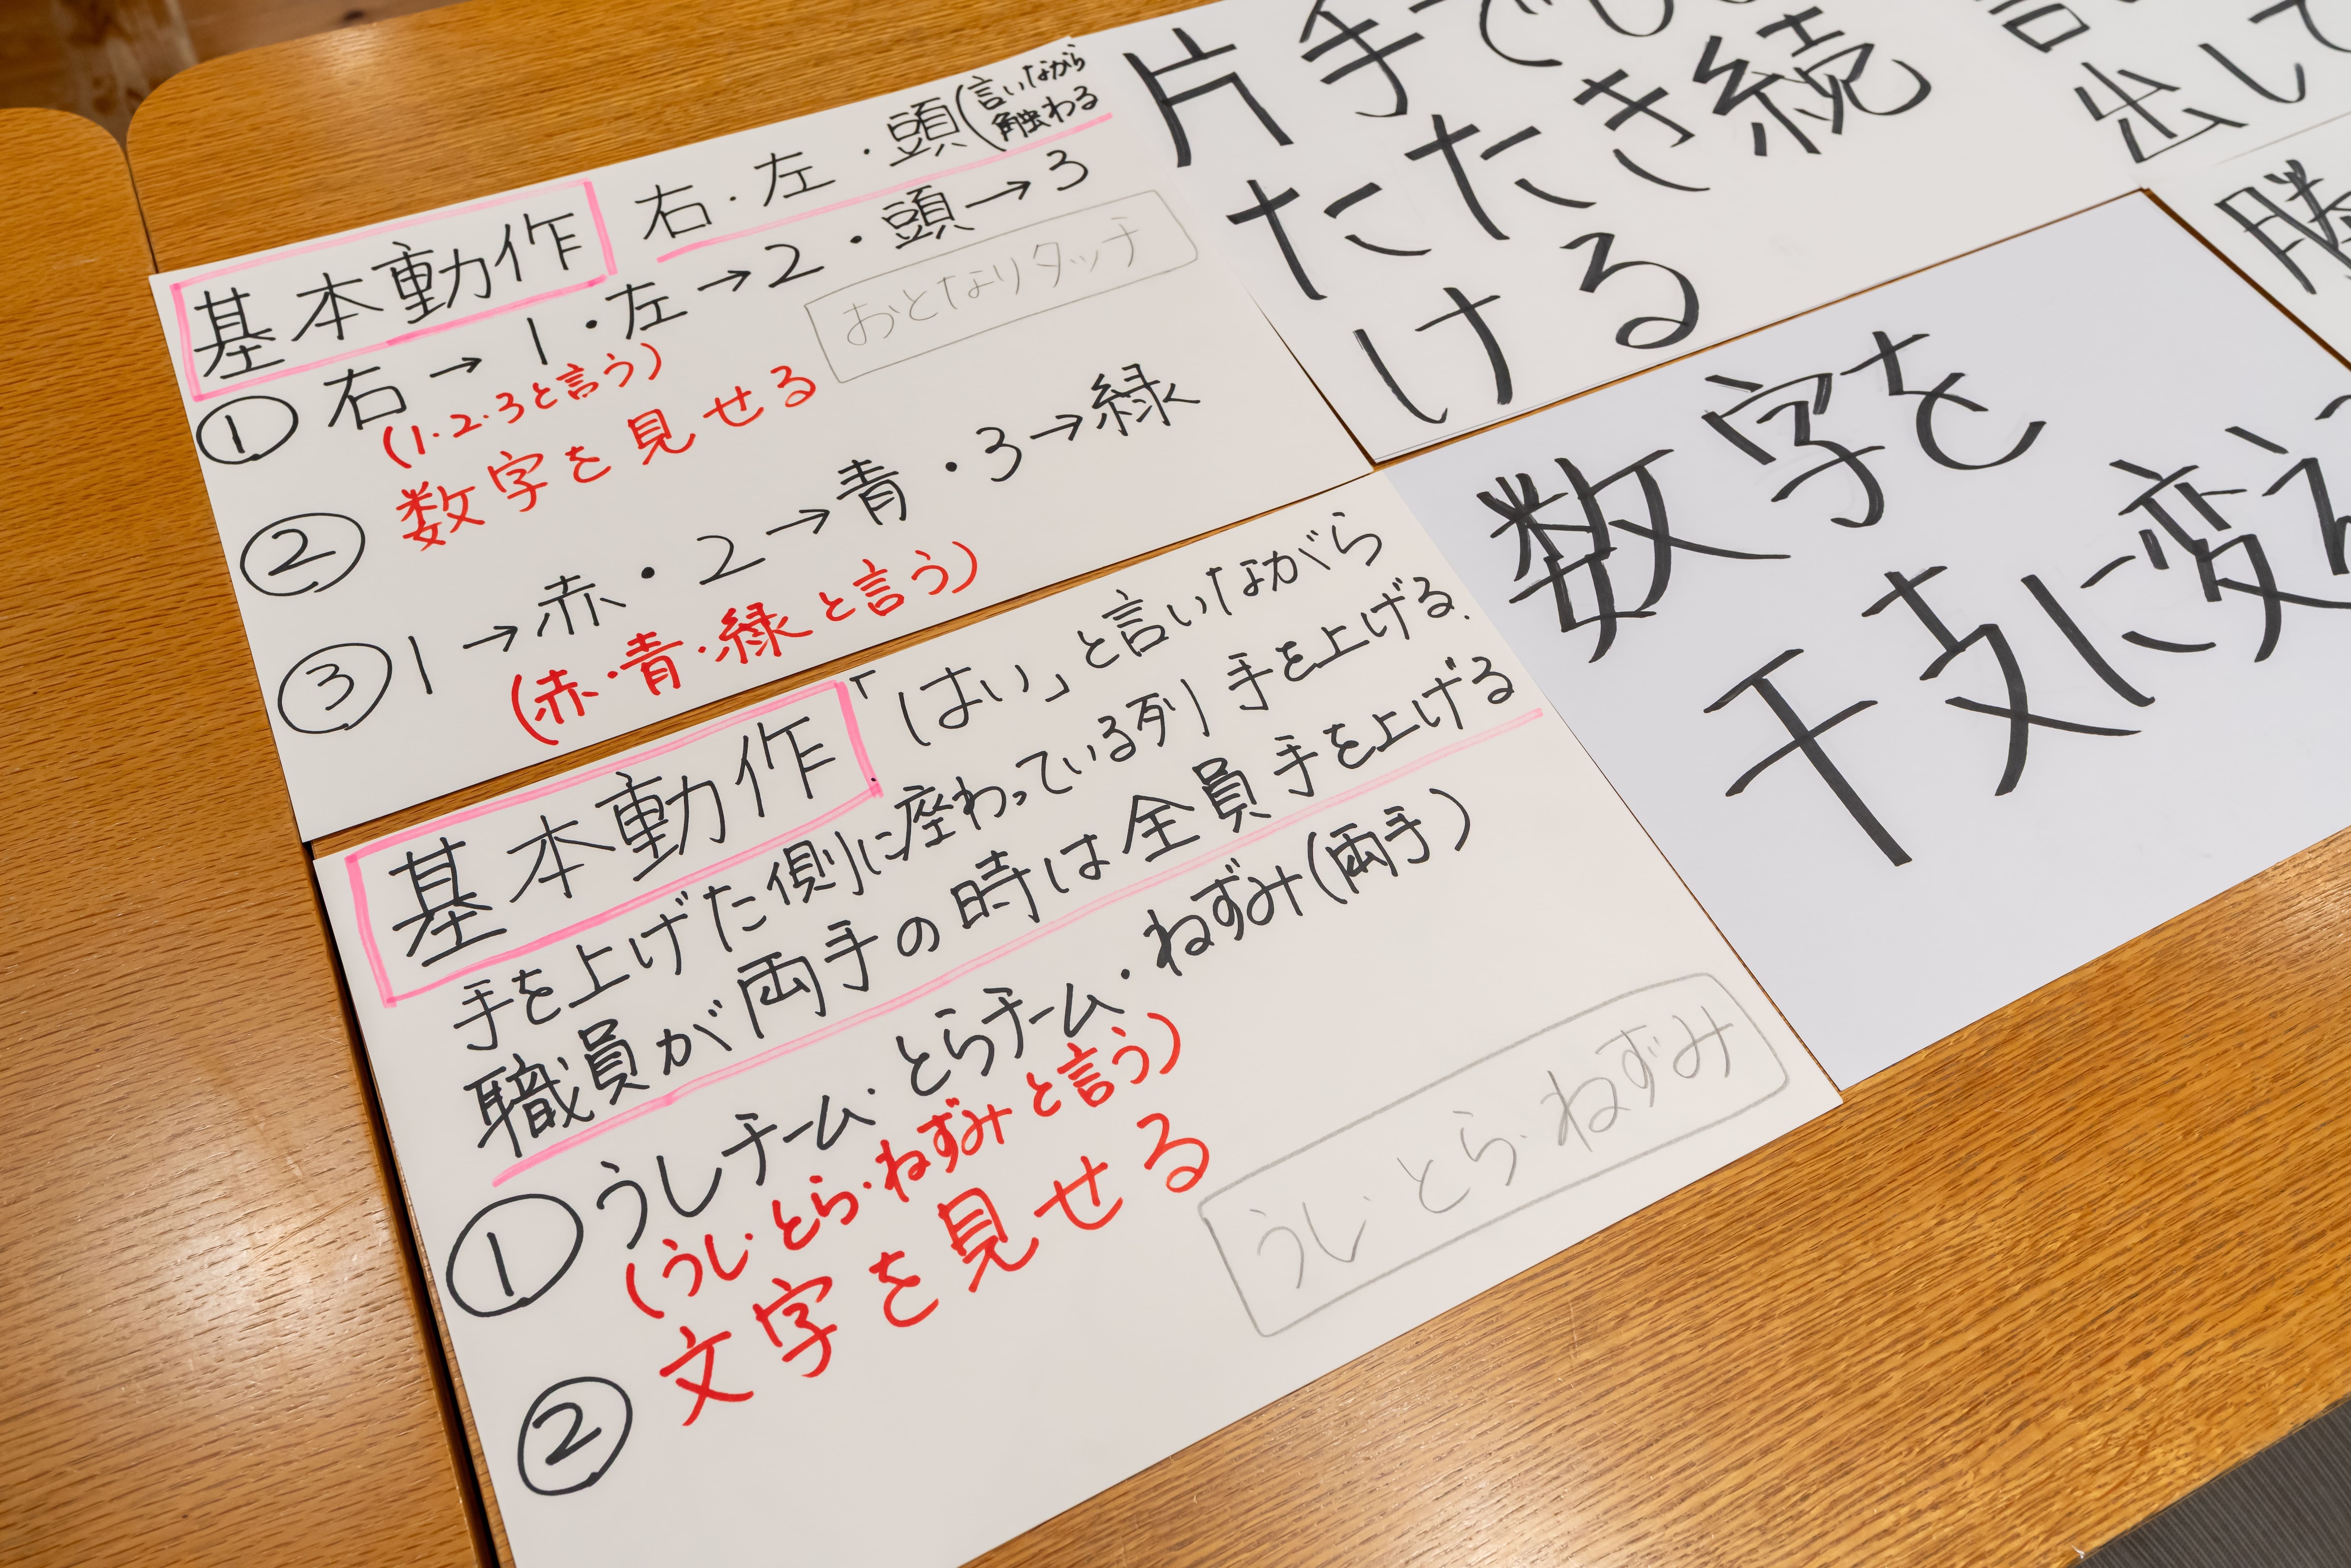 基本動作 右・左・頭(言いながら
触わる
① 右→1・左→2・頭→3
(1・2・3と言う)
おとなりタッチ
② 数字を見せる
③ 1→赤・2→青・3→緑
(赤・青・緑と言う)
基本動作 「はい」と言いながら
手を上げた側に座わっている列 手を上げる.
職員が両手の時は全員手を上げる
① うしチーム・とらチーム・ねずみ(両手)
(うし・とら・ねずみと言う)
② 文字を見せる
うし・とら・ねずみ
片手で
たたき続
ける
数字を
干支に変え
出して